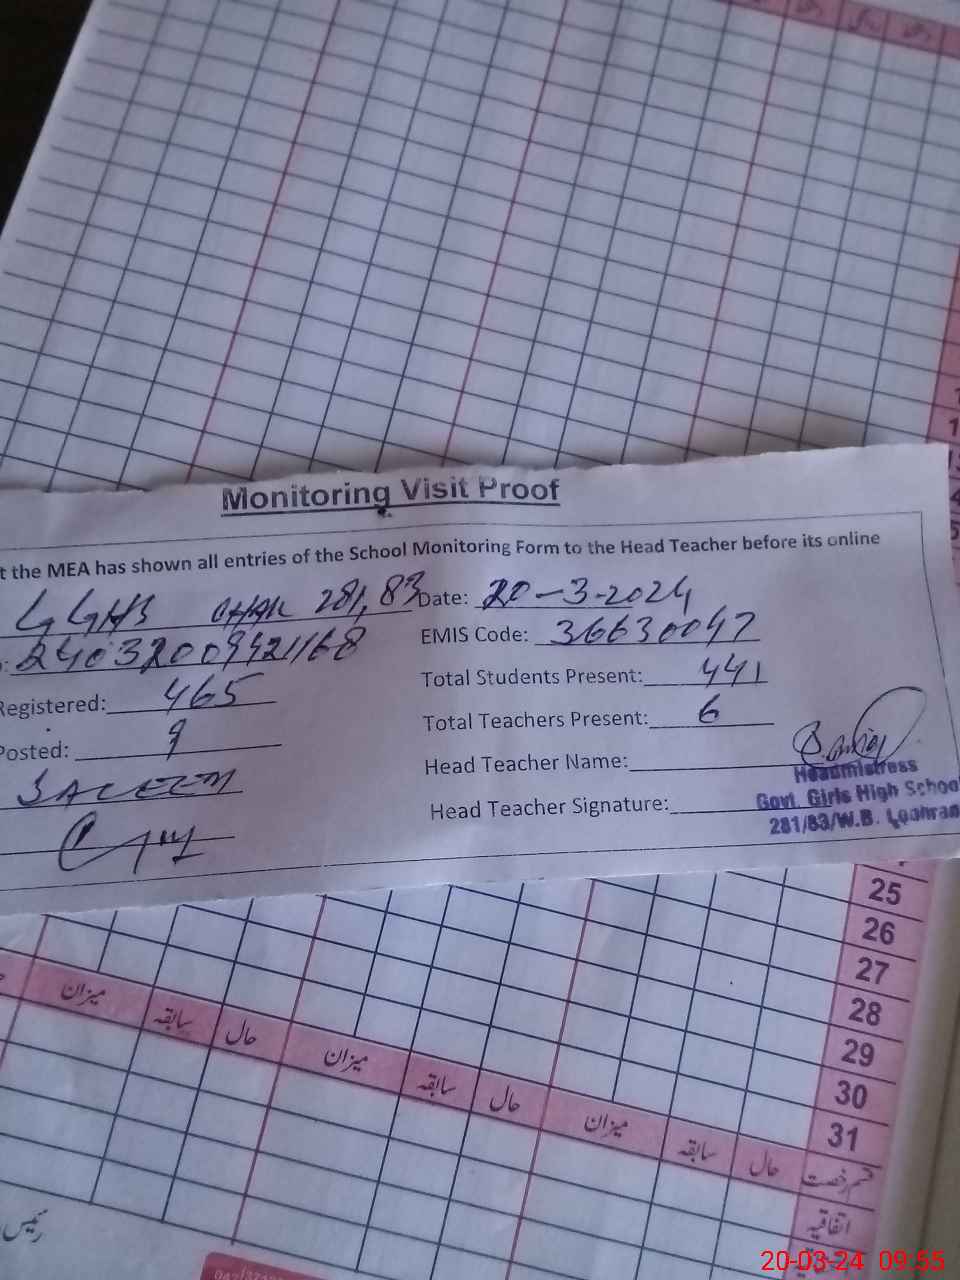 Monitoring Visit Proof
t the MEA has shown all entries of the School Monitoring Form to the Head Teacher before its online
GGHS CHAK 281,83 Date: 20-3-2024
: 24032009421168 EMIS Code: 36630047
Registered: 465 Total Students Present: 441
Posted: 9 Total Teachers Present: 6
SALEEM Head Teacher Name:
Head Teacher Signature:
Headmistress
Govt. Girls High Schoo
281/83/W.B. Lodhran
25
26
27
28
29
30
31
میزان سابقہ حال میزان سابقہ حال میزان سابقہ حال قسم رخصت
اتفاقیہ
20-03-24 09:55